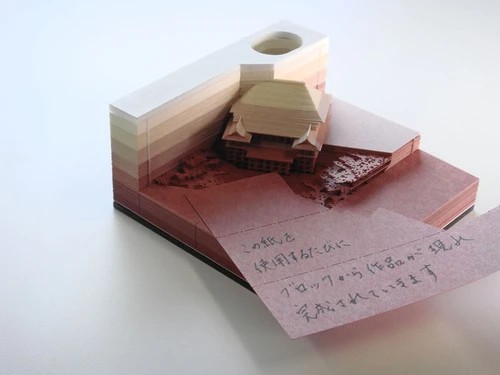 この紙を
使用するたびに
ブロックから作品が現れ
完成されていきます